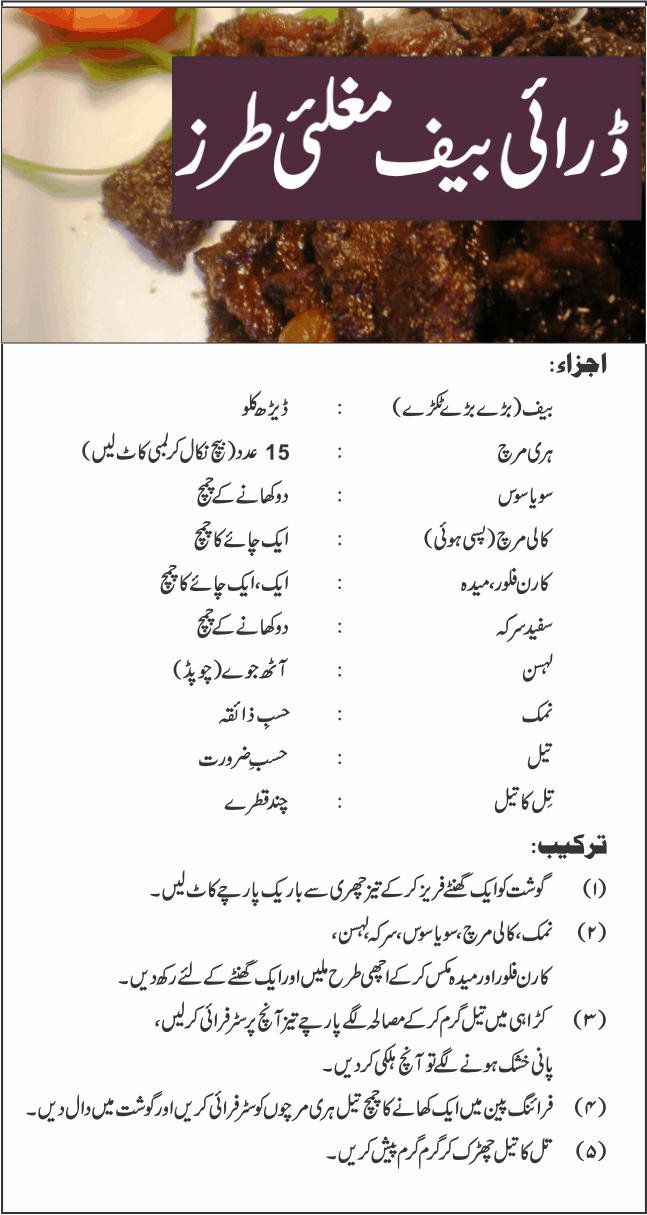 ڈرائی بیف مغلئی طرز
اجزاء:
بیف (بڑے بڑے ٹکڑے) : ڈیڑھ کلو
ہری مرچ : 15 عدد (بیچ نکال کر لمبی کاٹ لیں)
سویا سوس : دو کھانے کے چمچ
کالی مرچ (پسی ہوئی) : ایک چائے کا چمچ
کارن فلور، میدہ : ایک، ایک چائے کا چمچ
سفید سرکہ : دو کھانے کے چمچ
لہسن : آٹھ جوے (چوپڈ)
نمک : حسبِ ذائقہ
تیل : حسبِ ضرورت
تِل کا تیل : چند قطرے
ترکیب:
(۱) گوشت کو ایک گھنٹے فریز کر کے تیز چھری سے باریک پارچے کاٹ لیں۔
(۲) نمک، کالی مرچ، سویا سوس، سرکہ، لہسن،
کارن فلور اور میدہ مکس کر کے اچھی طرح ملیں اور ایک گھنٹے کے لئے رکھ دیں۔
(۳) کڑاہی میں تیل گرم کر کے مصالحہ لگے پارچے تیز آنچ پر سٹر فرائی کر لیں،
پانی خشک ہونے لگے تو آنچ ہلکی کر دیں۔
(۴) فرائنگ پین میں ایک کھانے کا چمچ تیل ہری مرچوں کو سٹر فرائی کریں اور گوشت میں دال دیں۔
(۵) تل کا تیل چھڑک کر گرم گرم پیش کریں۔